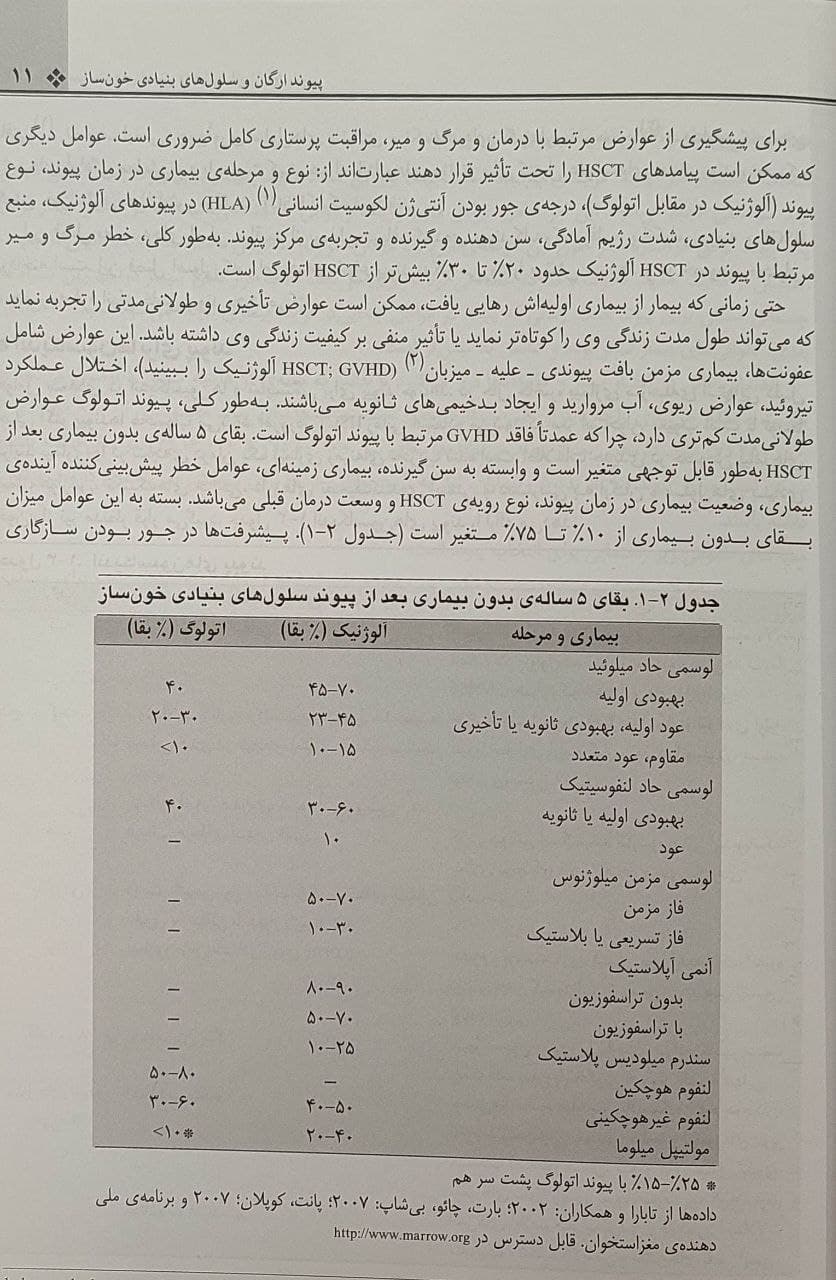 پیوند ارگان و سلول‌های بنیادی خون‌ساز ❖ ۱۱
برای پیشگیری از عوارض مرتبط با درمان و مرگ و میر، مراقبت پرستاری کامل ضروری است. عوامل دیگری
که ممکن است پیامدهای HSCT را تحت تأثیر قرار دهند عبارت‌اند از: نوع و مرحله‌ی بیماری در زمان پیوند، نوع
پیوند (آلوژنیک در مقابل اتولوگ)، درجه‌ی جور بودن آنتی‌ژن لکوسیت انسانی(۱) (HLA) در پیوندهای آلوژنیک، منبع
سلول‌های بنیادی، شدت رژیم آمادگی، سن دهنده و گیرنده و تجربه‌ی مرکز پیوند. به‌طور کلی، خطر مرگ و میر
مرتبط با پیوند در HSCT آلوژنیک حدود ۲۰٪ تا ۳۰٪ بیش‌تر از HSCT اتولوگ است.
حتی زمانی که بیمار از بیماری اولیه‌اش رهایی یافت، ممکن است عوارض تأخیری و طولانی‌مدتی را تجربه نماید
که می‌تواند طول مدت زندگی وی را کوتاه‌تر نماید یا تأثیر منفی بر کیفیت زندگی وی داشته باشد. این عوارض شامل
عفونت‌ها، بیماری مزمن بافت پیوندی ـ علیه ـ میزبان(۲) (HSCT; GVHD آلوژنیک را ببینید)، اختلال عملکرد
تیروئید، عوارض ریوی، آب مروارید و ایجاد بدخیمی‌های ثانویه می‌باشند. به‌طور کلی، پیوند اتولوگ عوارض
طولانی‌مدت کم‌تری دارد، چرا که عمدتاً فاقد GVHD مرتبط با پیوند اتولوگ است. بقای ۵ ساله‌ی بدون بیماری بعد از
HSCT به‌طور قابل توجهی متغیر است و وابسته به سن گیرنده، بیماری زمینه‌ای، عوامل خطر پیش‌بینی‌کننده آینده‌ی
بیماری، وضعیت بیماری در زمان پیوند، نوع رویه‌ی HSCT و وسعت درمان قبلی می‌باشد. بسته به این عوامل میزان
بقای بدون بیماری از ۱۰٪ تا ۷۵٪ متغیر است (جدول ۲-۱). پیشرفت‌ها در جور بودن سازگاری
جدول ۲-۱. بقای ۵ ساله‌ی بدون بیماری بعد از پیوند سلول‌های بنیادی خون‌ساز
بیماری و مرحله آلوژنیک (٪ بقا) اتولوگ (٪ بقا)
لوسمی حاد میلوئید
بهبودی اولیه ۴۵-۷۰ ۴۰
عود اولیه، بهبودی ثانویه یا تأخیری ۲۳-۴۵ ۲۰-۳۰
مقاوم، عود متعدد ۱۰-۱۵ <۱۰
لوسمی حاد لنفوسیتیک
بهبودی اولیه یا ثانویه ۳۰-۶۰ ۴۰
عود ۱۰ —
لوسمی مزمن میلوژنوس
فاز مزمن ۵۰-۷۰ —
فاز تسریعی یا بلاستیک ۱۰-۳۰ —
آنمی آپلاستیک
بدون تراسفوزیون ۸۰-۹۰ —
با تراسفوزیون ۵۰-۷۰ —
سندرم میلودیس پلاستیک ۱۰-۲۵ —
لنفوم هوچکین — ۵۰-۸۰
لنفوم غیرهوچکینی ۴۰-۵۰ ۳۰-۶۰
مولتیپل میلوما ۲۰-۴۰ <۱۰*
* ۲۵٪-۱۵٪ با پیوند اتولوگ پشت سر هم
داده‌ها از تابارا و همکاران: ۲۰۰۲؛ بارت، چائو، بی‌شاپ: ۲۰۰۷؛ پانت، کوپلان؛ ۲۰۰۷ و برنامه‌ی ملی
دهنده‌ی مغزاستخوان. قابل دسترس در http://www.marrow.org